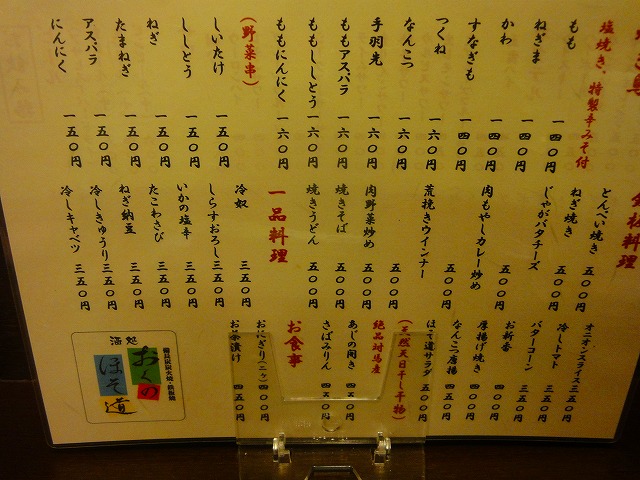 塩焼き、特製辛みそ付
もも 一四〇円
ねぎま 一四〇円
かわ 一四〇円
すなぎも 一四〇円
つくね 一六〇円
なんこつ 一六〇円
手羽先 一六〇円
ももアスパラ 一六〇円
ももししとう 一六〇円
ももにんにく 一六〇円
(野菜串)
しいたけ 一五〇円
ししとう 一五〇円
ねぎ 一五〇円
たまねぎ 一五〇円
アスパラ 一五〇円
にんにく 一五〇円
鉄板料理
とんぺい焼き 五〇〇円
ねぎ焼き 五〇〇円
じゃがバタチーズ
五〇〇円
肉もやしカレー炒め
五〇〇円
荒挽きウインナー
五〇〇円
肉野菜炒め 五〇〇円
焼きそば 五〇〇円
焼きうどん 五〇〇円
一品料理
冷奴 三五〇円
しらすおろし 三五〇円
いかの塩辛 三五〇円
たこわさび 三五〇円
ねぎ納豆 三五〇円
冷しきゅうり 三五〇円
冷しキャベツ 三五〇円
オニオンスライス 三五〇円
冷しトマト 三五〇円
バターコーン 三五〇円
お新香 四〇〇円
厚揚げ焼き 四〇〇円
なんこつ唐揚 四五〇円
ほそ道サラダ 五〇〇円
(天然天日干し干物)
絶品対馬産
あじの開き 四五〇円
さばみりん 四五〇円
お食事
おにぎり(二ヶ) 四〇〇円
お茶漬け 四五〇円
備長炭炭火焼・鉄板焼
酒処
おくの
ほそ道